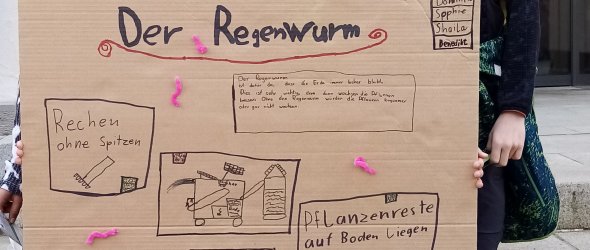 Dominik
Sophie
Shaila
Benedikt
Der Regenwurm
Der Regenwurm
ist dafür da, dass die Erde immer locker bleibt.
Dies ist sehr wichtig, denn dann wachsen die Pflanzen
besser. Ohne den Regenwurm würden die Pflanzen langsamer
oder gar nicht wachsen.
Rechen
ohne Spitzen
Pflanzenreste
auf Boden liegen